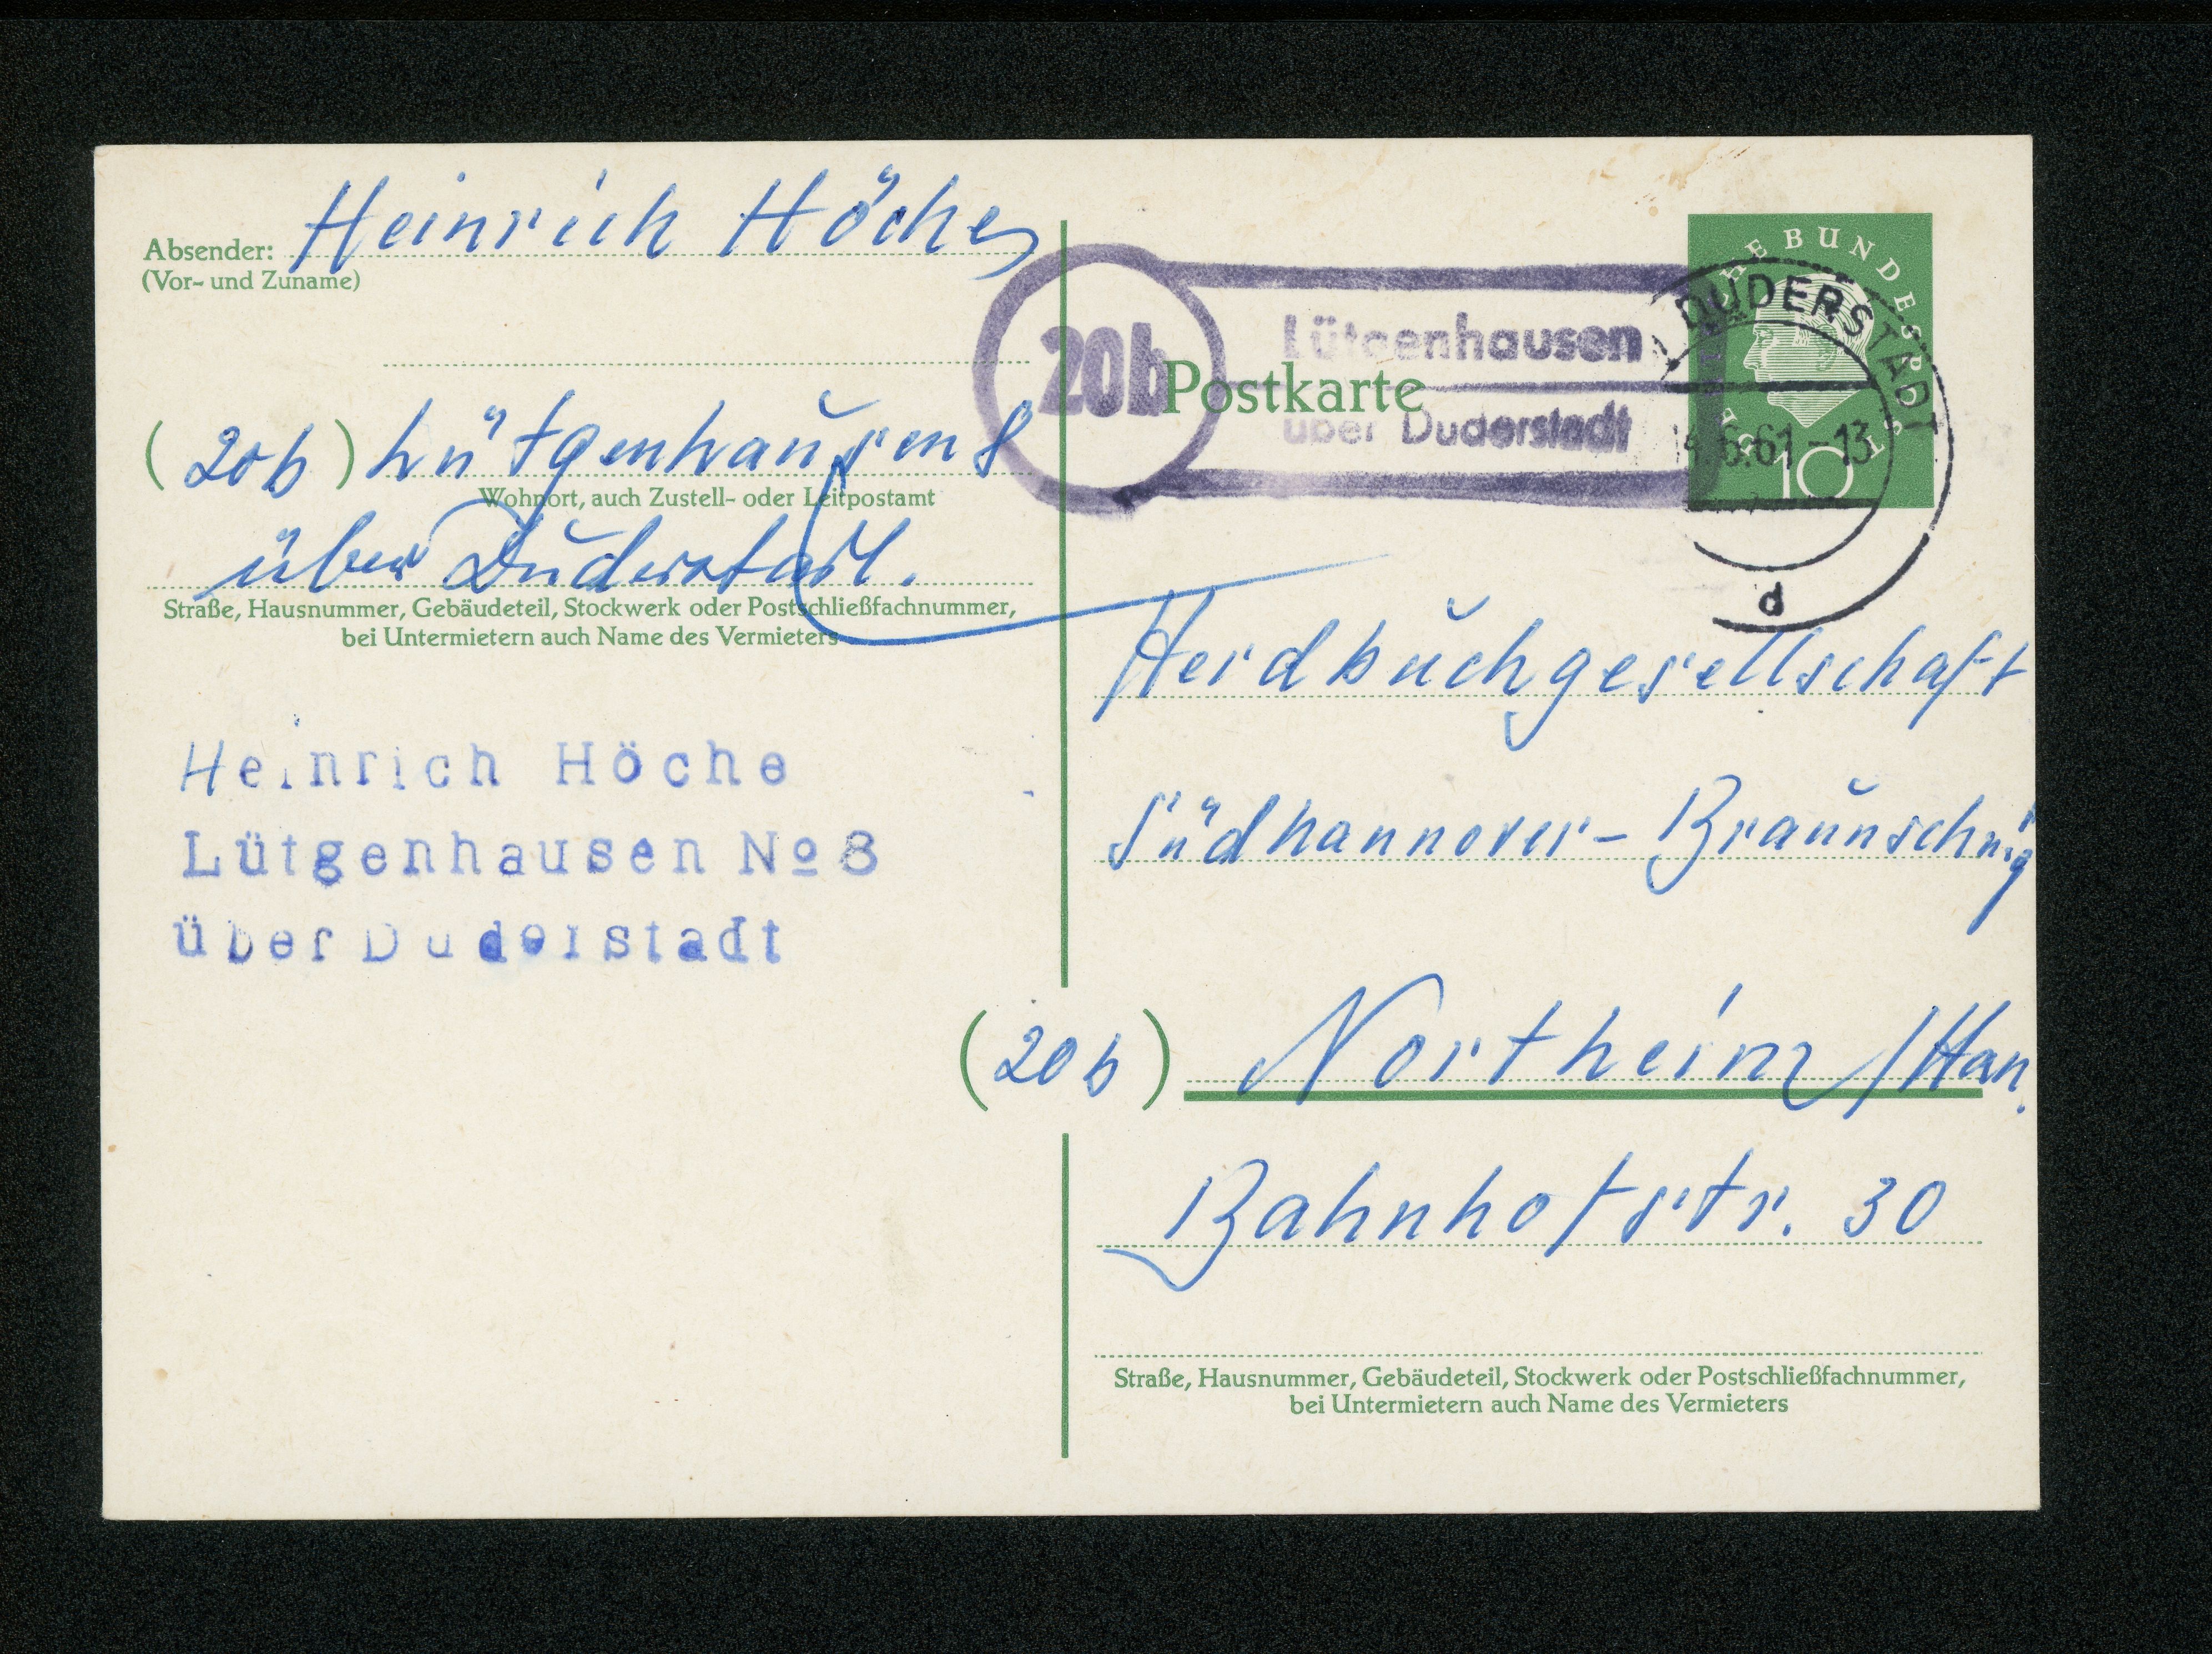 Absender: Heinrich Höche
(Vor- und Zuname)
(20b) Lütgenhausen 8
Wohnort, auch Zustell- oder Leitpostamt
über Duderstadt.
Straße, Hausnummer, Gebäudeteil, Stockwerk oder Postschließfachnummer,
bei Untermietern auch Name des Vermieters
Heinrich Höche
Lütgenhausen No 8
über Duderstadt
20b
Lütgenhausen
über Duderstadt
Postkarte
BUNDESPOST
10
DUDERSTADT
4.6.61-13
d
Herdbuchgesellschaft
Südhannover-Braunschweig
(20b) Northeim / Han.
Bahnhofstr. 30
Straße, Hausnummer, Gebäudeteil, Stockwerk oder Postschließfachnummer,
bei Untermietern auch Name des Vermieters